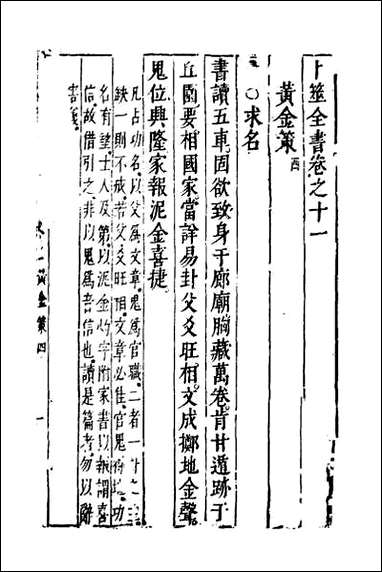 卜筮全書卷之十一
黃金策 四
○求名
書讀五車固欲致身于廊廟胸藏萬卷肯甘遁跡于
丘園要相國家當詳易卦父爻旺相文成擲地金聲
鬼位興隆家報泥金喜捷
凡占功名以父爲文章鬼爲官職二者一卦之
缺一則不成若父爻旺相文章必佳官鬼 功
名有望士人及第以泥金 字附家書以報謂喜
信故借引之非以鬼爲喜信也讀是篇者勿以辭
害意
黃金策四 一